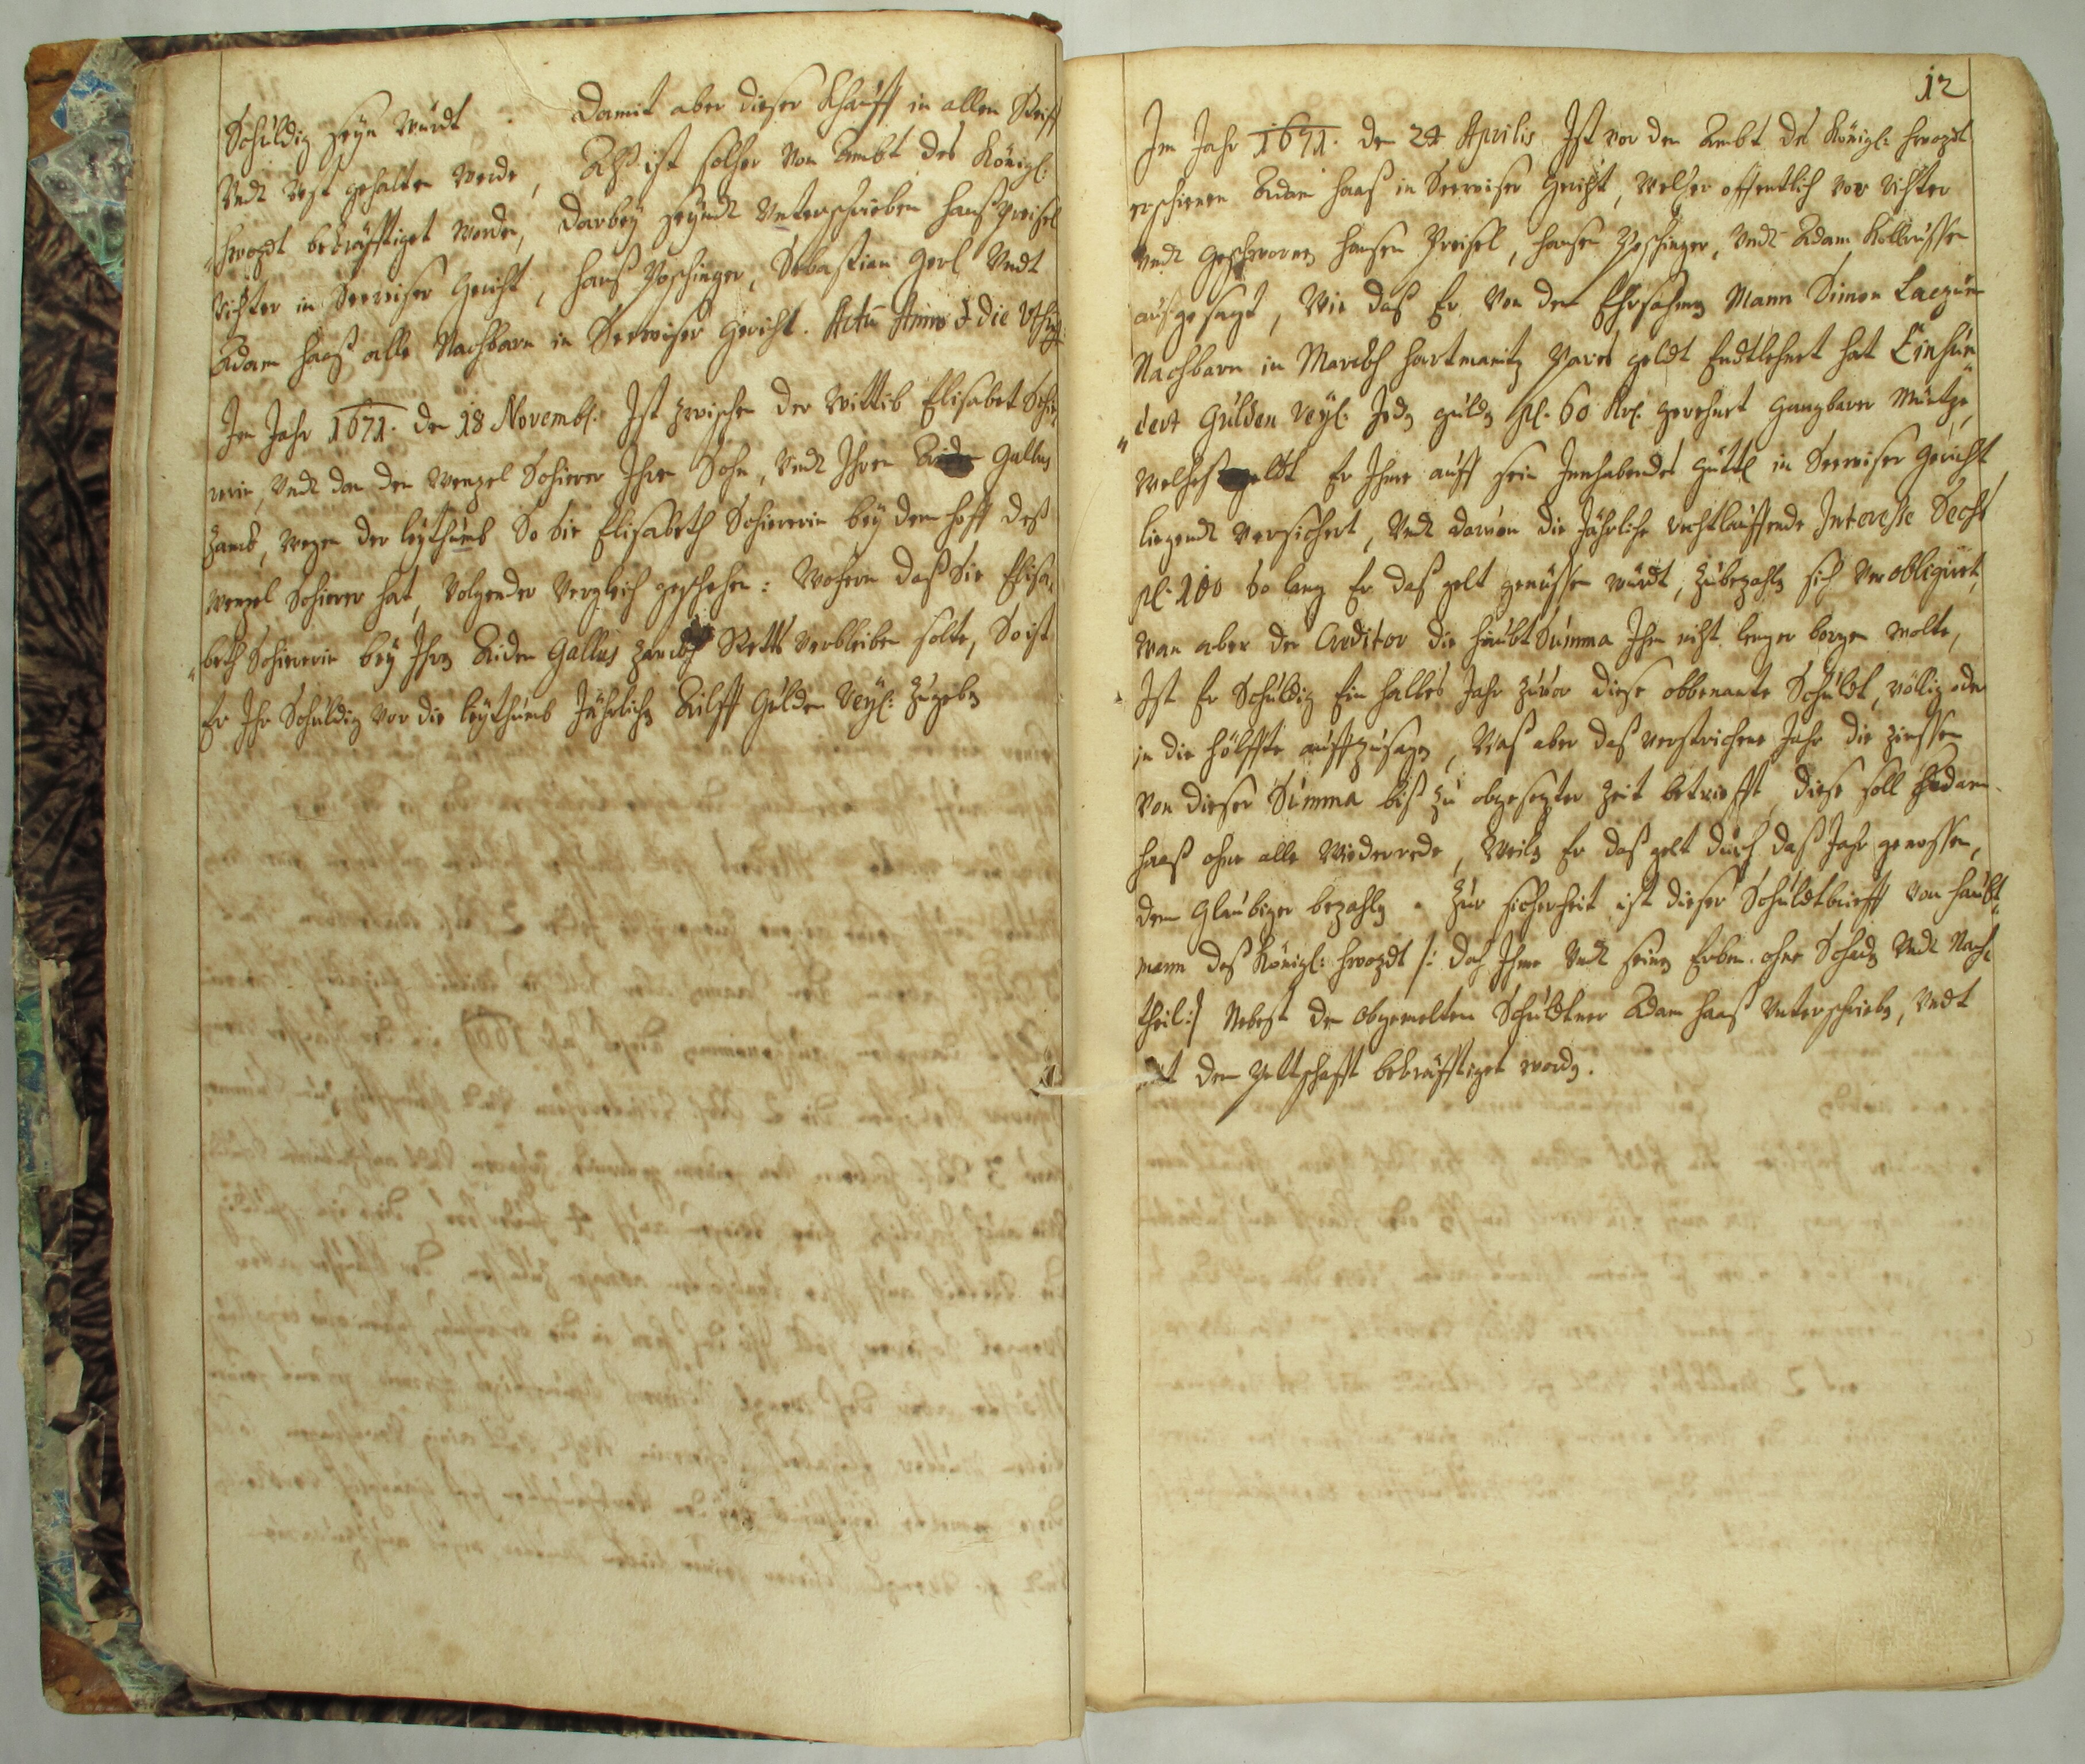 Schuldig seyn würdt. Damit aber dieser Khauff in allen Steiff
Undt Vest gehalten werde, Alß ist solcher Von Ambt des Königl:
hwozdt bekräfftiget worden, darbey seyndt Unterschrieben Hanß Preisel
Richter in Seewiser Gericht, Hanß Poschinger, Sebastian Gerl Undt
Adam Haaß alle Nachbarn in Seewiser Gericht. Actu Anno & die Ut
Im Jahr 1671. den 18 Novembl: Ist zwischen der Wittib Elisabet Schie
rerin, Undt dan den Wenzel Schierer Ihren Sohn, Undt Ihren Aiden Gallus
Zamb, wegen der leythumb So Sie Elisabeth Schiererin bey dem Hoff deß
Wenzel Schierer hat, Volgender Vergleich geschehen: Wofern daß Sie Elisa„
„beth Schiererin bey Ihrn Aiden Gallus Stetts Verbleiben solte, So ist
Er Ihr Schuldig vor die leythumb Jährlichen Ailff Gulden Reyl: zugeben
12
Im Jahr 1671. den 24 Aprilis Ist vor den Ambt des Königl: hwozdt
erschienen Adam Haaß in Seewiser Gericht, Welcher offentlich vor Richter
Undt Geschwornen Hansen Preisel, Hansen Poschinger, Undt Adam
außgesagt, Wie daß Er Von den Ehrsahmen Mann Simon
Nachbarn in Marckh Hartmanitz Pares geldt Endtlehnet hat Einhun
„dert Gulden Reyl: Jeden gulden pl. 60 Krl. gerechnet Gangbarer Müntze,
Welches geldt Er Ihme auff sein Innhabendes Güttl in Seewiser Gericht
liegendt Versichert, Undt darvon die Jährliche rechtlauffende Interesse Sechs
pl. 100 So lang Er daß gelt genüssen würdt, zubezahlen sich Verobligiret,
Wan aber der Creditor die HaubtSumma Ihm nicht lenger borgen wolte,
Ist Er Schuldig Ein halbes Jahr zuvor diese obbenante Schuldt, völlig oder
in die Hölffte auffzusagen, Waß aber daß verstrichene Jahr die zinssen
Von dieser Summa biß zu obgesezter Zeit betriefft, diese soll Adam
Haaß ohne alle Wiederrede, Weilen Er daß gelt durch daß Jahr genossen,
dem Glaubiger bezahlen. Zur sicherheit ist dieser Schuldtbrieff von Haubt
mann deß Königl: hwozdt /: doch Ihme Undt seinen Erben ohne Schaden Undt Nach
theil:/ Nebest den obgemelten Schuldtner Adam Haaß Unterschrieben, Undt
mit dem Pettschafft bekräfftiget worden.